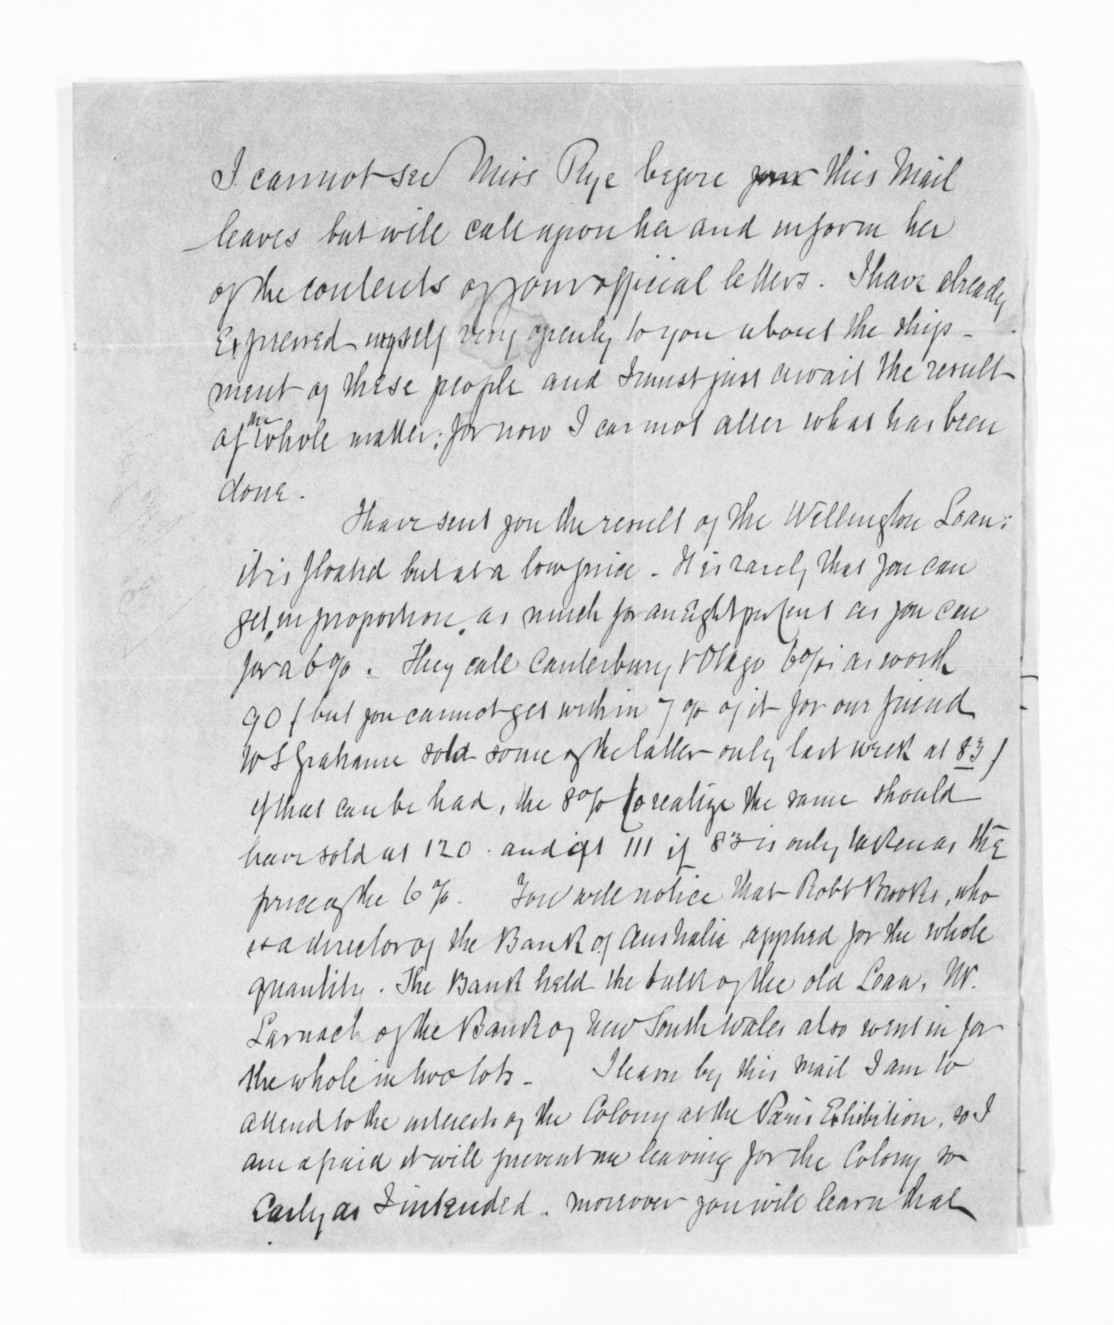 I cannot see Miss Rye before this Mail
leaves but will call upon her and inform her
of the contents of your official letters. I have already
Expressed myself very openly to you about the ship-
ment of these people and I must just await the result
of the whole matter; for now I cannot alter what has been
done.
I have sent you the result of the Wellington Loan:
it is floated but at a low price. It is rarely that you can
get, in proportion, as much for an Eight per Cent as you can
for a 6%. They call Canterbury & Otago 6%s as worth
90 (but you cannot get within 7% of it for our friend
W S Grahame sold some of the latter only last week at 83)
if that can be had, the 8% to realize the same should
have sold at 120 and at 111 if 83 is only taken as the
price of the 6%. You will notice that Robt Brooks, who
is a director of the Bank of Australia applied for the whole
quantity. The Bank held the bulk of the old Loan, Mr.
Larnach of the Bank of New South Wales also went in for
the whole in two lots. I learn by this Mail I am to
attend to the interests of the Colony at the Paris Exhibition, so I
am afraid it will prevent me leaving for the Colony so
Early as I intended. Moreover you will learn that